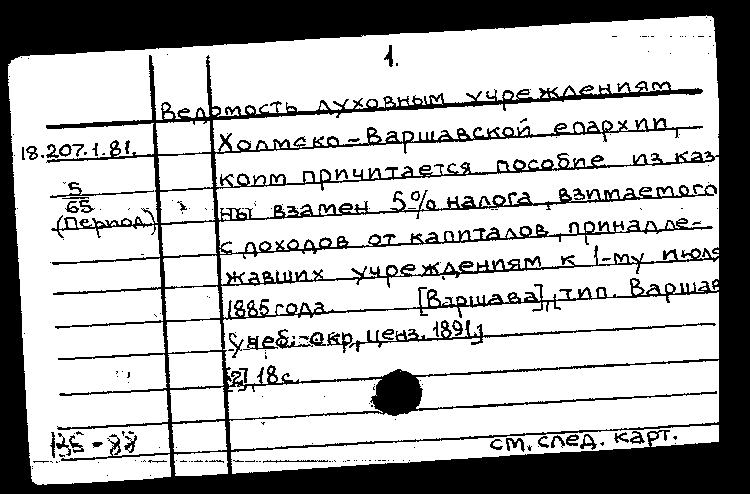 1.
Ведомость духовным учреждениям
18.207.1.81.
Холмско-Варшавской епархии,
5
65
(Период)
коим причитается пособие из каз-
ны взамен 5% налога, взимаемого
с доходов от капиталов, принадле-
жавших учреждениям к 1-му июля
1885 года. [Варшава], [тип. Варшав
учеб. окр, ценз. 1891.]
[2], 18 с.
135-88
см. след. карт.